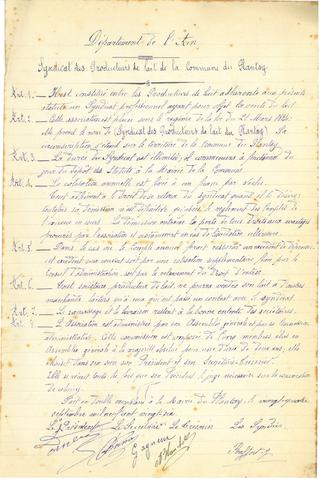 Département de l'Ain
Syndicat des Producteurs de lait de la Commune du Plantay
Art. 1. - Il est constitué entre les Producteurs de lait adhérents aux présents
statuts un Syndicat professionnel ayant pour objet la vente du lait
Art. 2. - Cette association est placée sous le régime de la loi du 21 Mars 1884
elle prend le nom de (Syndicat des Producteurs de lait du Plantay) Sa
circonscription s'étend sur le territoire de la commune du Plantay.
Art. 3. - La durée du Syndicat est illimitée, il commencera à fonctionner du
jour du dépôt des Statuts à la Mairie de la Commune.
Art. 4. - La cotisation annuelle est fixée à un franc par vache.
Tout adhérent a le Droit de se retirer du Syndicat quand
toutefois sa démission
l'année en cours. La Démission entraîne la perte de tous
par l'association
Art. 5. - Dans le cas où le compte annuel ferait ressortir un excédent de dépenses
cet excédent sera couvert soit par une cotisation supplémentaire fixée par le
Conseil d'administration, soit par le relèvement du Droit d'entrée.
Art. 6. - Tout sociétaire, producteur de lait, ne pourra vendre son lait à d'autres
marchands, laitiers qu'à ceux qui ont passé un contrat avec le syndicat.
Art. 7. - Le ramassage et la livraison restent à la bonne entente des sociétaires.
Art. 8. - L'Association est administrée par son Assemblée générale et par sa Commission
administrative. Cette commission est composée de Cinq membres élus en
Assemblée générale à la majorité absolue pour une durée de deux ans; elle
choisit dans son sein son Président et son Secrétaire-Trésorier.
Elle se réunit toutes les fois que son Président le juge nécessaire sur la convocation
de celui-ci.
Fait en double exemplaire à la Mairie du Plantay, le vingt-quatre
septembre mil neuf cent vingt six
Le Président Le Secrétaire Le Trésorier Les Syndics